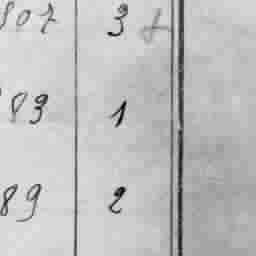 807 3
83 1
89 2